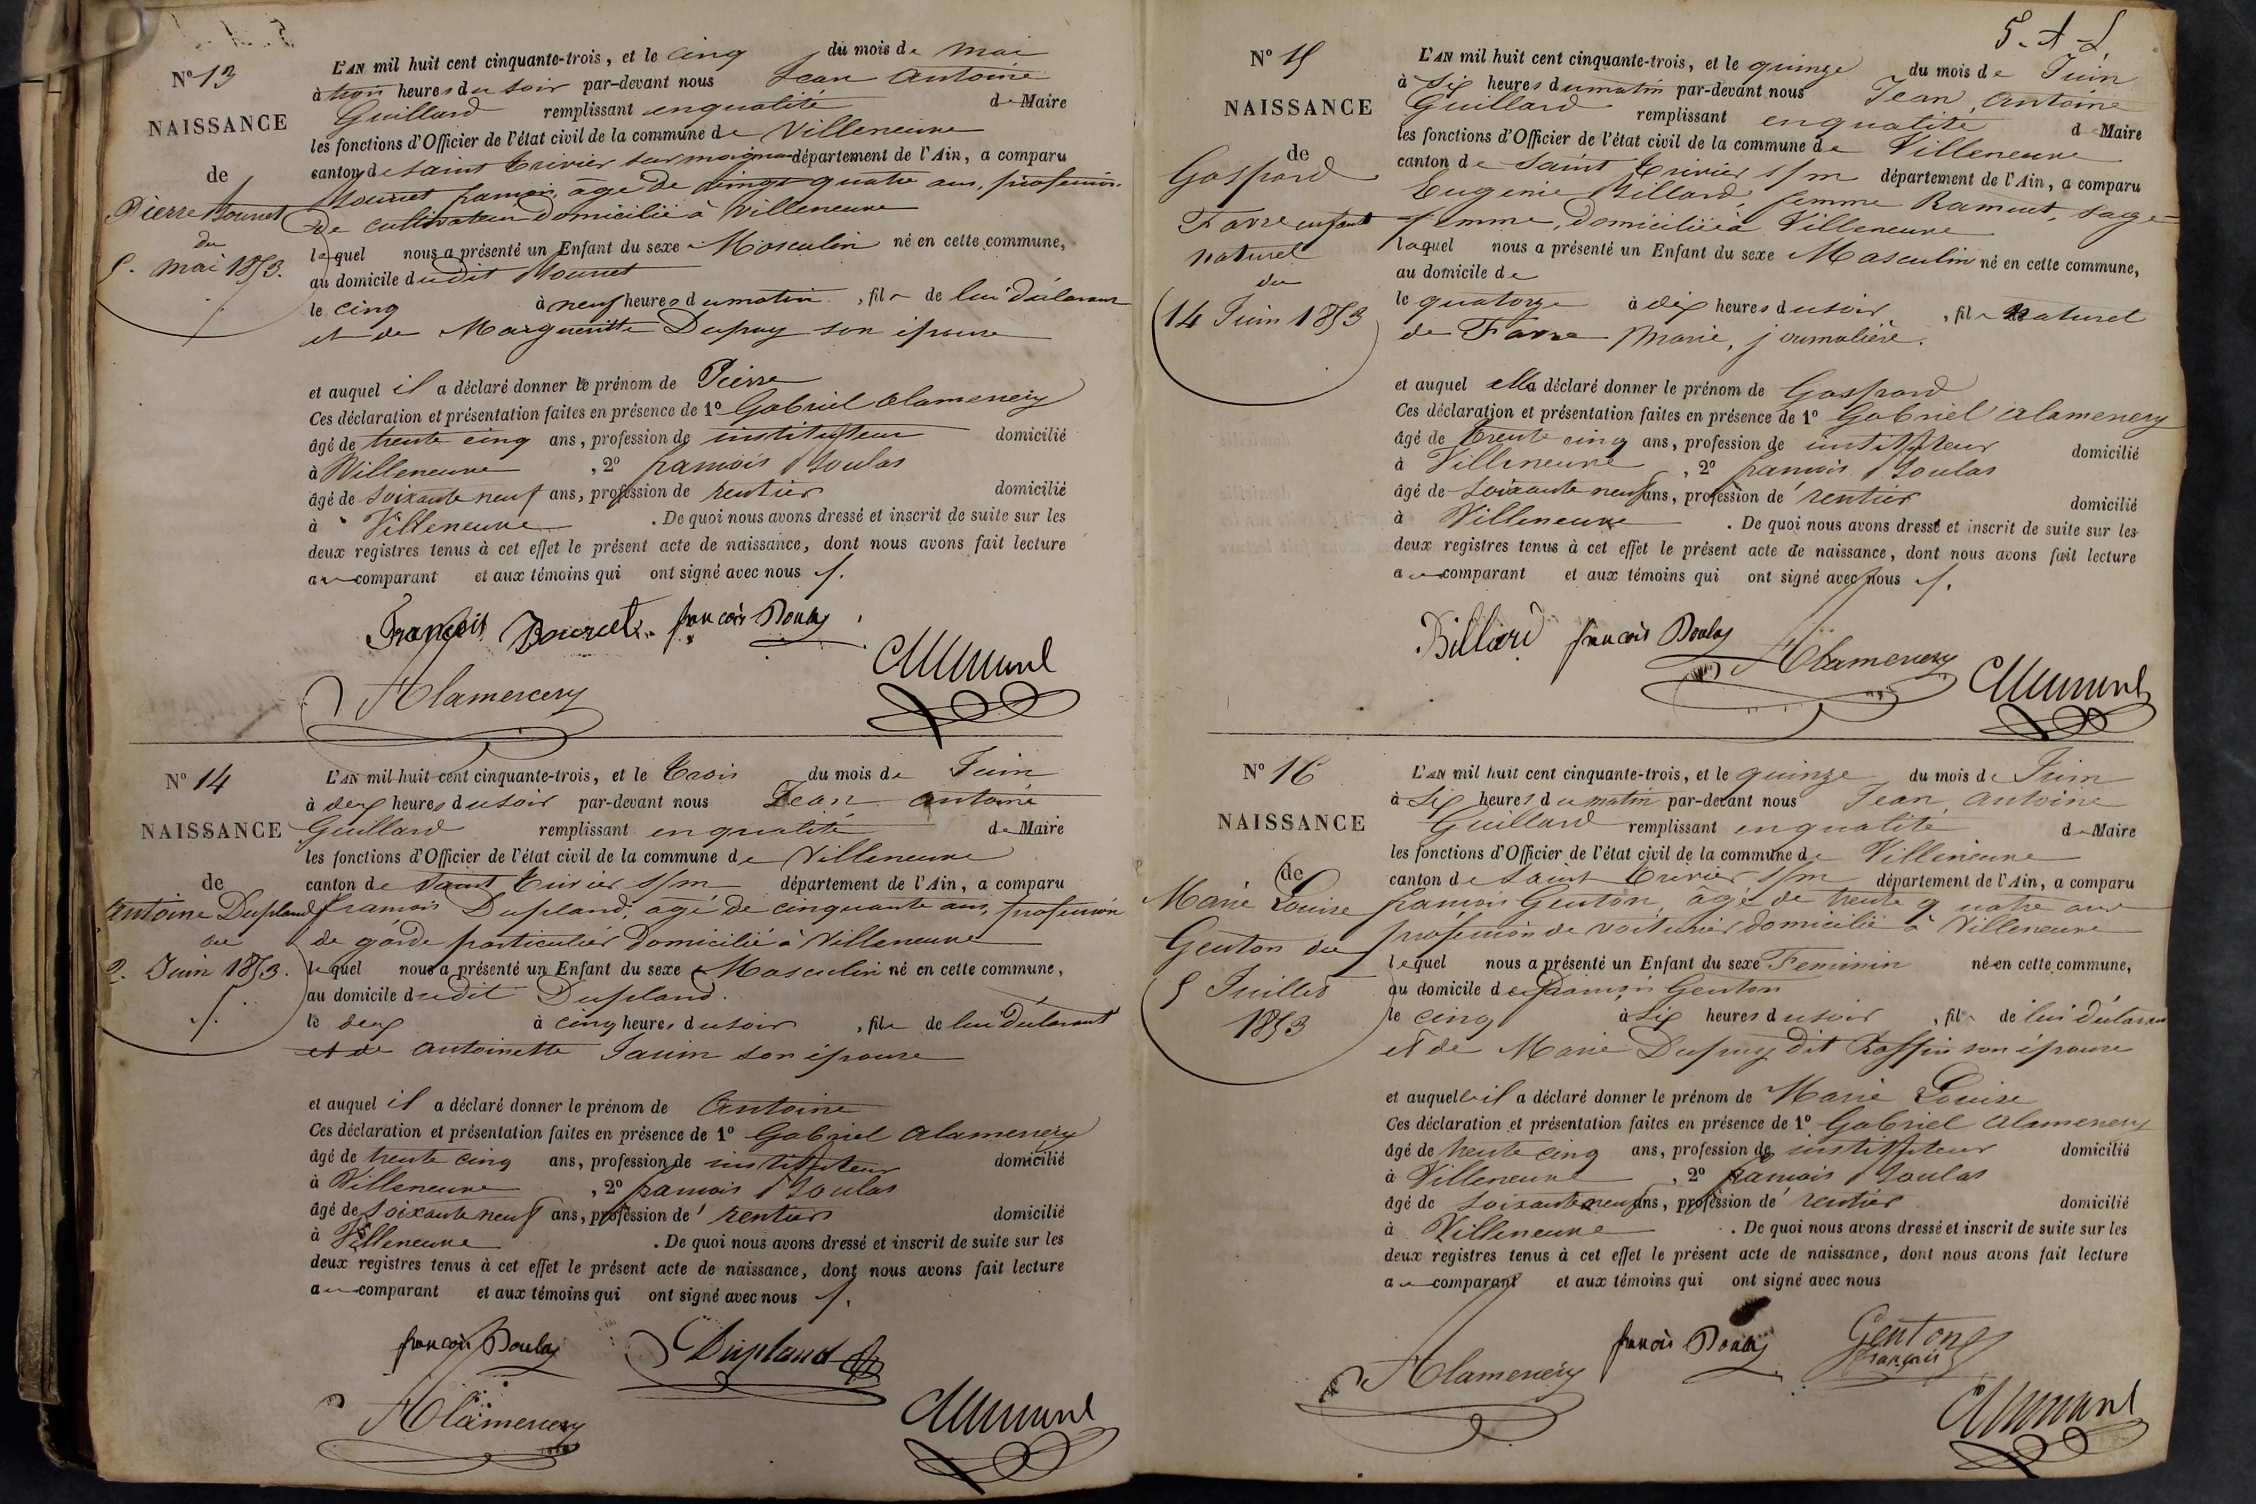 N° 13
NAISSANCE
de
Pierre Bourcet
du
5. mai 1853.
L'AN mil huit cent cinquante-trois, et le cinq du mois de mai
à trois heures du soir par-devant nous Jean Antoine
Guillard remplissant en qualité de Maire
les fonctions d'Officier de l'état civil de la commune de Villeneuve
canton de Saint Trivier sur département de l'Ain, a comparu
Bourcet francois, âgé de vingt quatre ans, profession
de cultivateur domicilié à Villeneuve
lequel nous a présenté un Enfant du sexe Masculin né en cette commune,
au domicile dudit Bourcet
le cinq à neuf heures du matin, fils de lui Déclarant
et de Margueritte Dupuy son épouse
et auquel il a déclaré donner le prénom de Pierre
Ces déclaration et présentation faites en présence de 1° Gabriel Alamercery
âgé de trente cinq ans, profession de instituteur domicilié
à Villeneuve, 2° francois Boulas
âgé de soixante neuf ans, profession de rentier domicilié
à Villeneuve. De quoi nous avons dressé et inscrit de suite sur les
deux registres tenus à cet effet le présent acte de naissance, dont nous avons fait lecture
au comparant et aux témoins qui ont signé avec nous
François Bourcet. francois Boulas
Alamercery
N° 14
NAISSANCE
de
Antoine Dupland
du
2. Juin 1853.
L'AN mil huit cent cinquante-trois, et le trois du mois de Juin
à deux heures du soir par-devant nous Jean Antoine
Guillard remplissant en qualité de Maire
les fonctions d'Officier de l'état civil de la commune de Villeneuve
canton de Saint Trivier s/m département de l'Ain, a comparu
francois Dupland, âgé de cinquante ans, profession
de garde particulier domicilié à Villeneuve
lequel nous a présenté un Enfant du sexe Masculin né en cette commune,
au domicile dudit Dupland.
le deux à cinq heures du soir, fils de lui Déclarant
et de Antoinette son épouse
et auquel il a déclaré donner le prénom de Antoine
Ces déclaration et présentation faites en présence de 1° Gabriel Alamercery
âgé de trente cinq ans, profession de instituteur domicilié
à Villeneuve, 2° francois Boulas
âgé de soixante neuf ans, profession de rentier domicilié
à Villeneuve. De quoi nous avons dressé et inscrit de suite sur les
deux registres tenus à cet effet le présent acte de naissance, dont nous avons fait lecture
au comparant et aux témoins qui ont signé avec nous
francois Boulas Dupland
Alamercery
N° 15
NAISSANCE
de
Gaspard
Favre enfant
naturel
du
14 Juin 1853
L'AN mil huit cent cinquante-trois, et le quinze du mois de Juin
à six heures du matin par-devant nous Jean, Antoine
Guillard remplissant en qualité de Maire
les fonctions d'Officier de l'état civil de la commune de Villeneuve
canton de Saint Trivier s/m département de l'Ain, a comparu
Eugenie Billard, femme Ramuet, sage-
femme, domiciliée à Villeneuve
laquel nous a présenté un Enfant du sexe Masculin né en cette commune,
au domicile de
le quatorze à dix heures du soir, fils naturel
de Favre Marie, journalière.
et auquel elle a déclaré donner le prénom de Gaspard
Ces déclaration et présentation faites en présence de 1° Gabriel Alamercery
âgé de trente cinq ans, profession de instituteur domicilié
à Villeneuve, 2° francois Boulas
âgé de soixante neuf ans, profession de rentier domicilié
à Villeneuve. De quoi nous avons dressé et inscrit de suite sur les
deux registres tenus à cet effet le présent acte de naissance, dont nous avons fait lecture
au comparant et aux témoins qui ont signé avec nous
Billard francois Boulas
Alamercery
N° 16
NAISSANCE
de
Marie Louise
Genton du
5 Juillet
1853
L'AN mil huit cent cinquante-trois, et le quinze du mois de Juin
à six heures du matin par-devant nous Jean, Antoine
Guillard remplissant en qualité de Maire
les fonctions d'Officier de l'état civil de la commune de Villeneuve
canton de Saint Trivier s/m département de l'Ain, a comparu
francois Genton, âgé de trente quatre ans
profession de voiturier domicilié à Villeneuve
lequel nous a présenté un Enfant du sexe Feminin né en cette commune,
au domicile de francois Genton
le cinq à six heures du soir, fil de lui déclarant
et de Marie Dupuy dit Raffin son épouse
et auquelle il a déclaré donner le prénom de Marie Louise
Ces déclaration et présentation faites en présence de 1° Gabriel Alamercery
âgé de trente cinq ans, profession de instituteur domicilié
à Villeneuve, 2° francois Boulas
âgé de soixante neuf ans, profession de rentier domicilié
à Villeneuve. De quoi nous avons dressé et inscrit de suite sur les
deux registres tenus à cet effet le présent acte de naissance, dont nous avons fait lecture
au comparant et aux témoins qui ont signé avec nous
francois Boulas Genton
françois
Alamercery